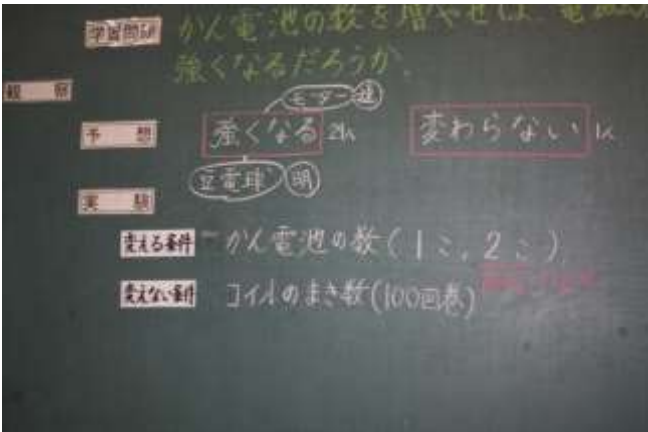 学習問題 かん電池の数を増やせば、電
強くなるだろうか。
観 察
モーター 速
予 想 強くなる 2人 変わらない 1人
豆電球 明
実 験
変える条件 かん電池の数(1こ,2こ)
変えない条件 コイルのまき数(100回巻)